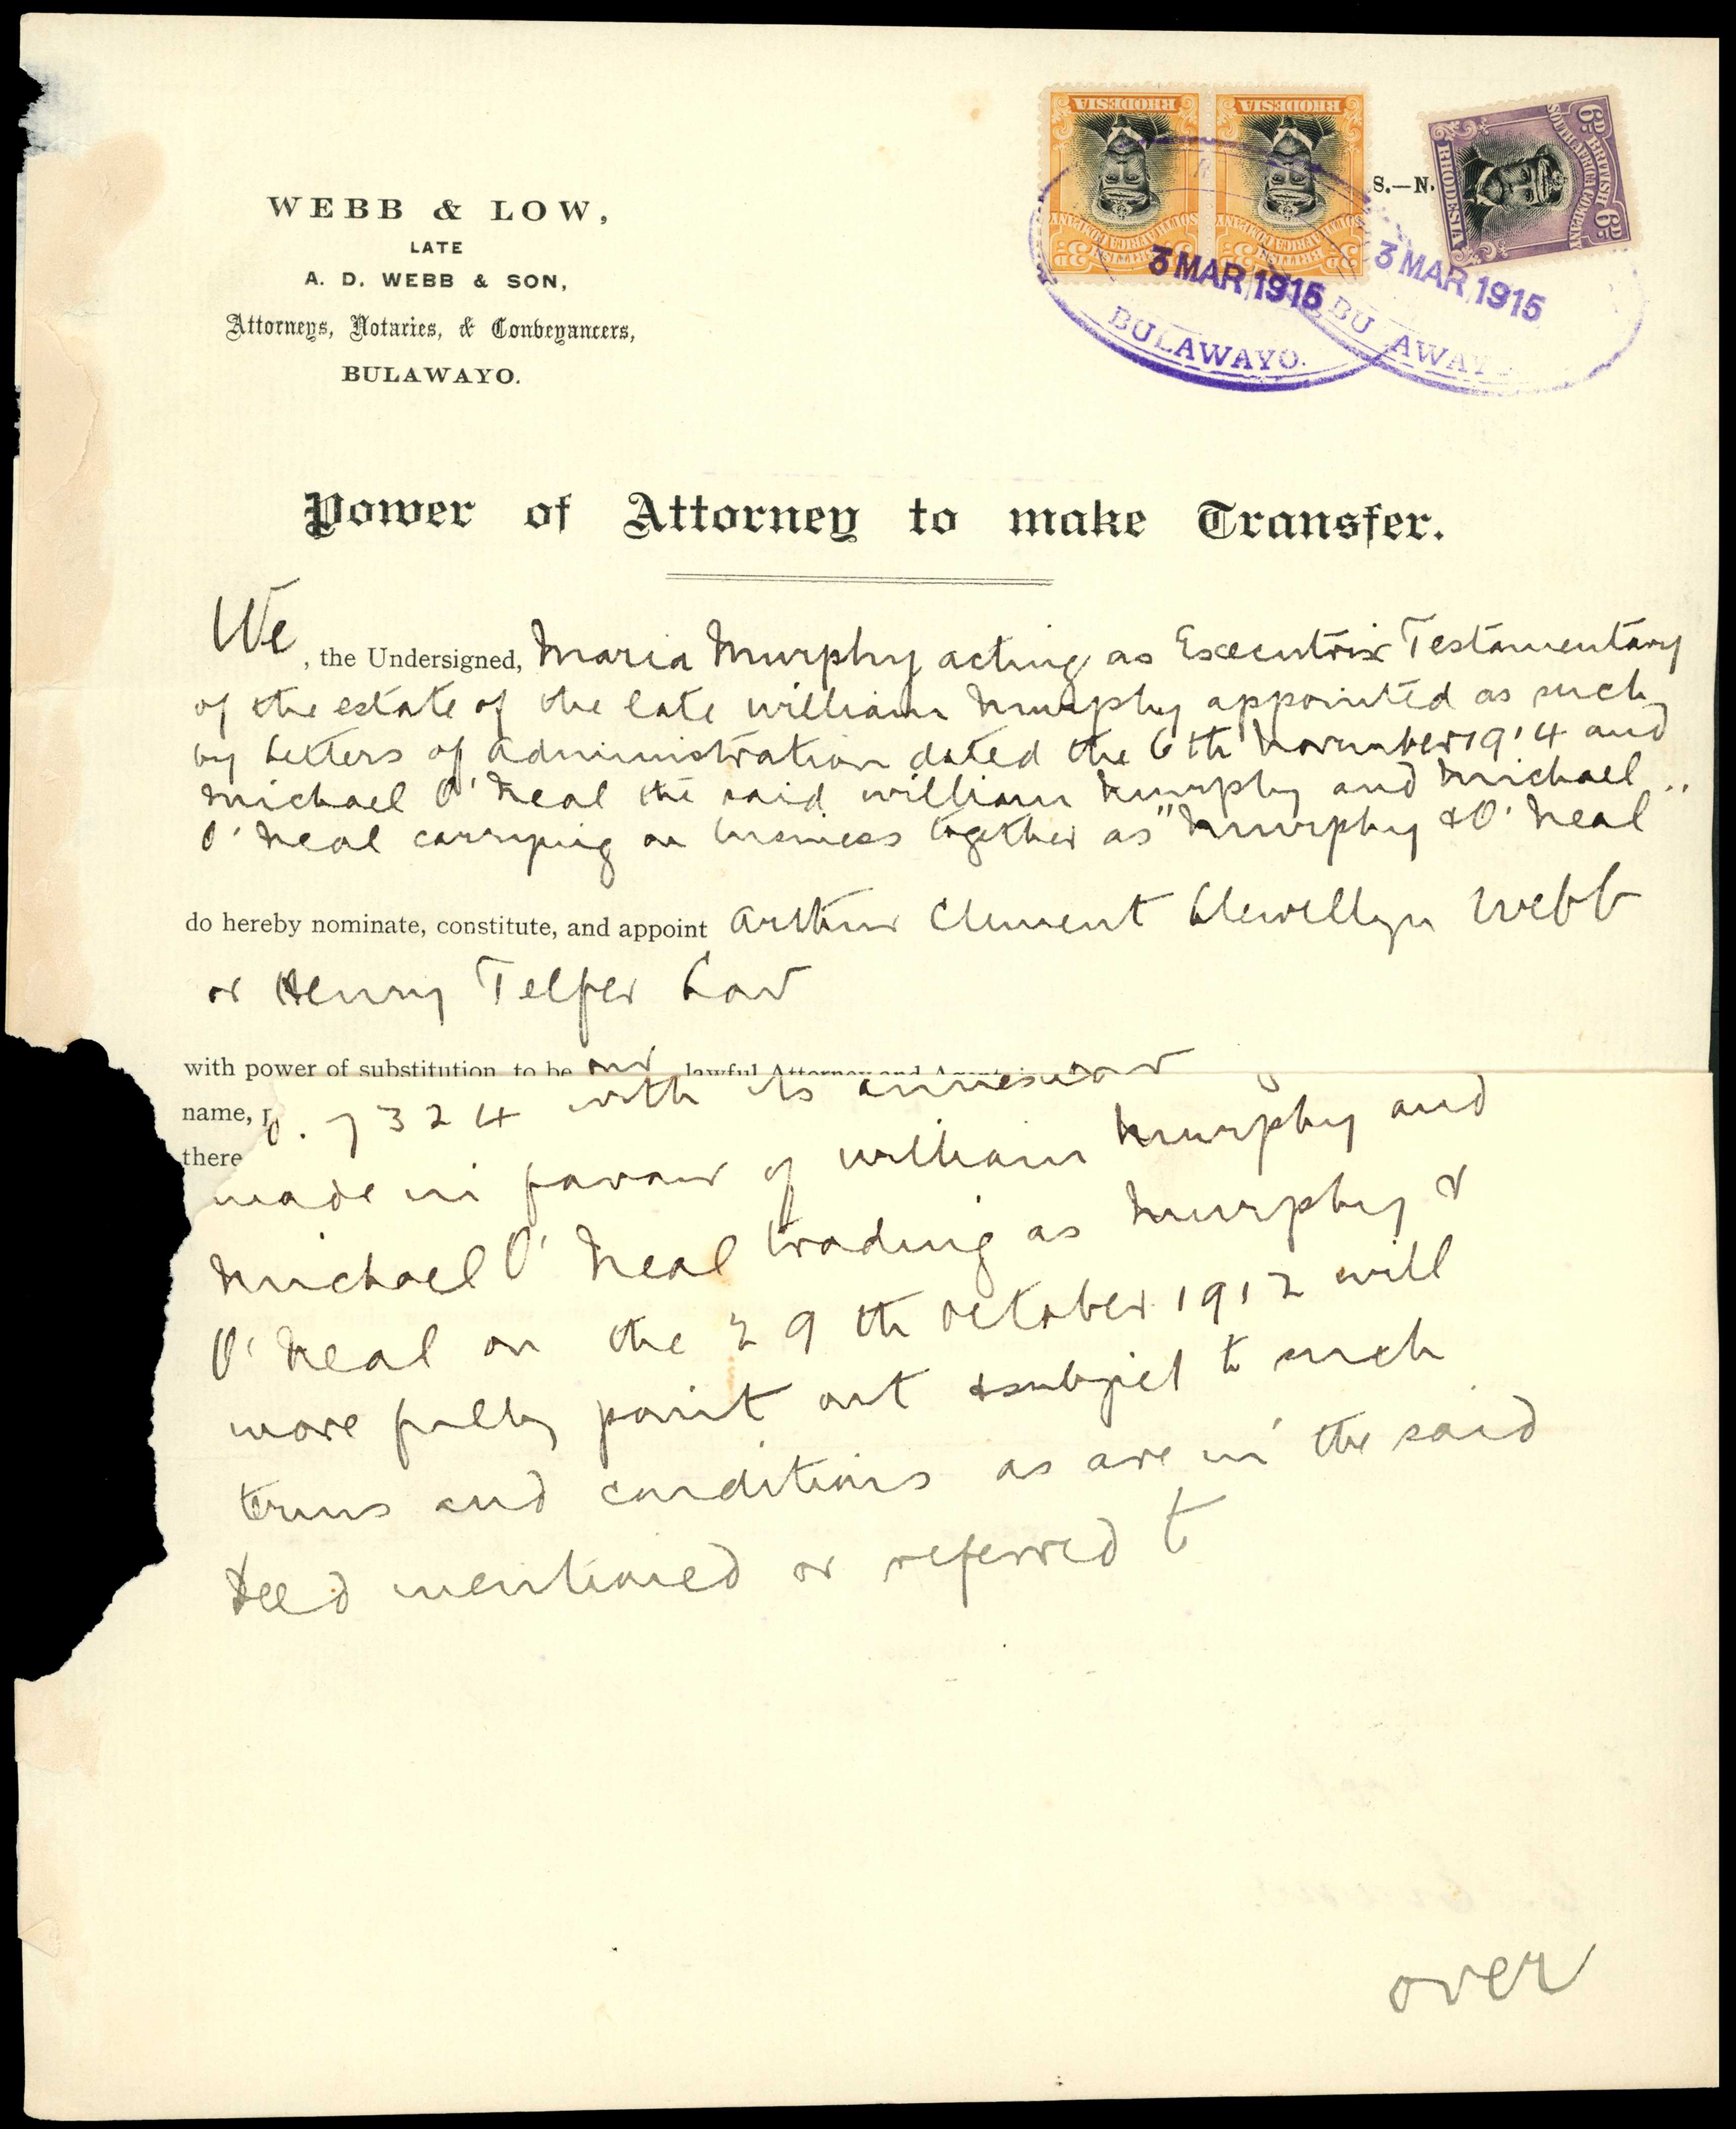 WEBB & LOW,
LATE
A. D. WEBB & SON,
Attorneys, Notaries, & Conveyancers,
BULAWAYO.
RHODESIA
RHODESIA
BRITISH
SOUTH AFRICA COMPANY
3D
3D
BRITISH
SOUTH AFRICA COMPANY
3D
3D
S.—N.
6D BRITISH 6D
SOUTH AFRICA COMPANY
RHODESIA
3 MAR 1915
3 MAR 1915
BULAWAYO.
BU AWAY
Power of Attorney to make Transfer.
We, the Undersigned, Maria Murphy acting as Executrix Testamentary
of the estate of the late William Murphy appointed as such
by Letters of Administration dated the 6th November 1914 and
Michael O'Neal the said William Murphy and Michael
O'Neal carrying on business together as "Murphy & O'Neal
do hereby nominate, constitute, and appoint Arthur Clement Llewellyn Webb
or Henry Telfer Low
with power of substitution to be our lawful Attorney and Agent
name,
there
7324 with its annexure
made in favour of William Murphy and
Michael O'Neal trading as Murphy &
O'Neal on the 29th October 1912 will
more fully point out & subject to such
terms and conditions as are in the said
Deed mentioned or referred to
over